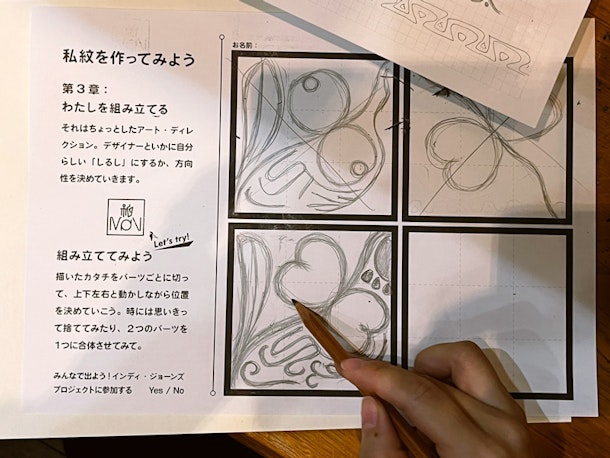 私紋を作ってみよう
第3章：
わたしを組み立てる
それはちょっとしたアート・ディレ
クション。デザイナーといかに自分
らしい「しるし」にするか、方向
性を決めていきます。
Let's try!
組み立ててみよう
描いたカタチをパーツごとに切っ
て、上下左右と動かしながら位置
を決めていこう。時には思いきっ
て捨ててみたり、2つのパーツを
1つに合体させてみて。
みんなで出よう！インディ・ジョーンズ
プロジェクトに参加する Yes / No
お名前：